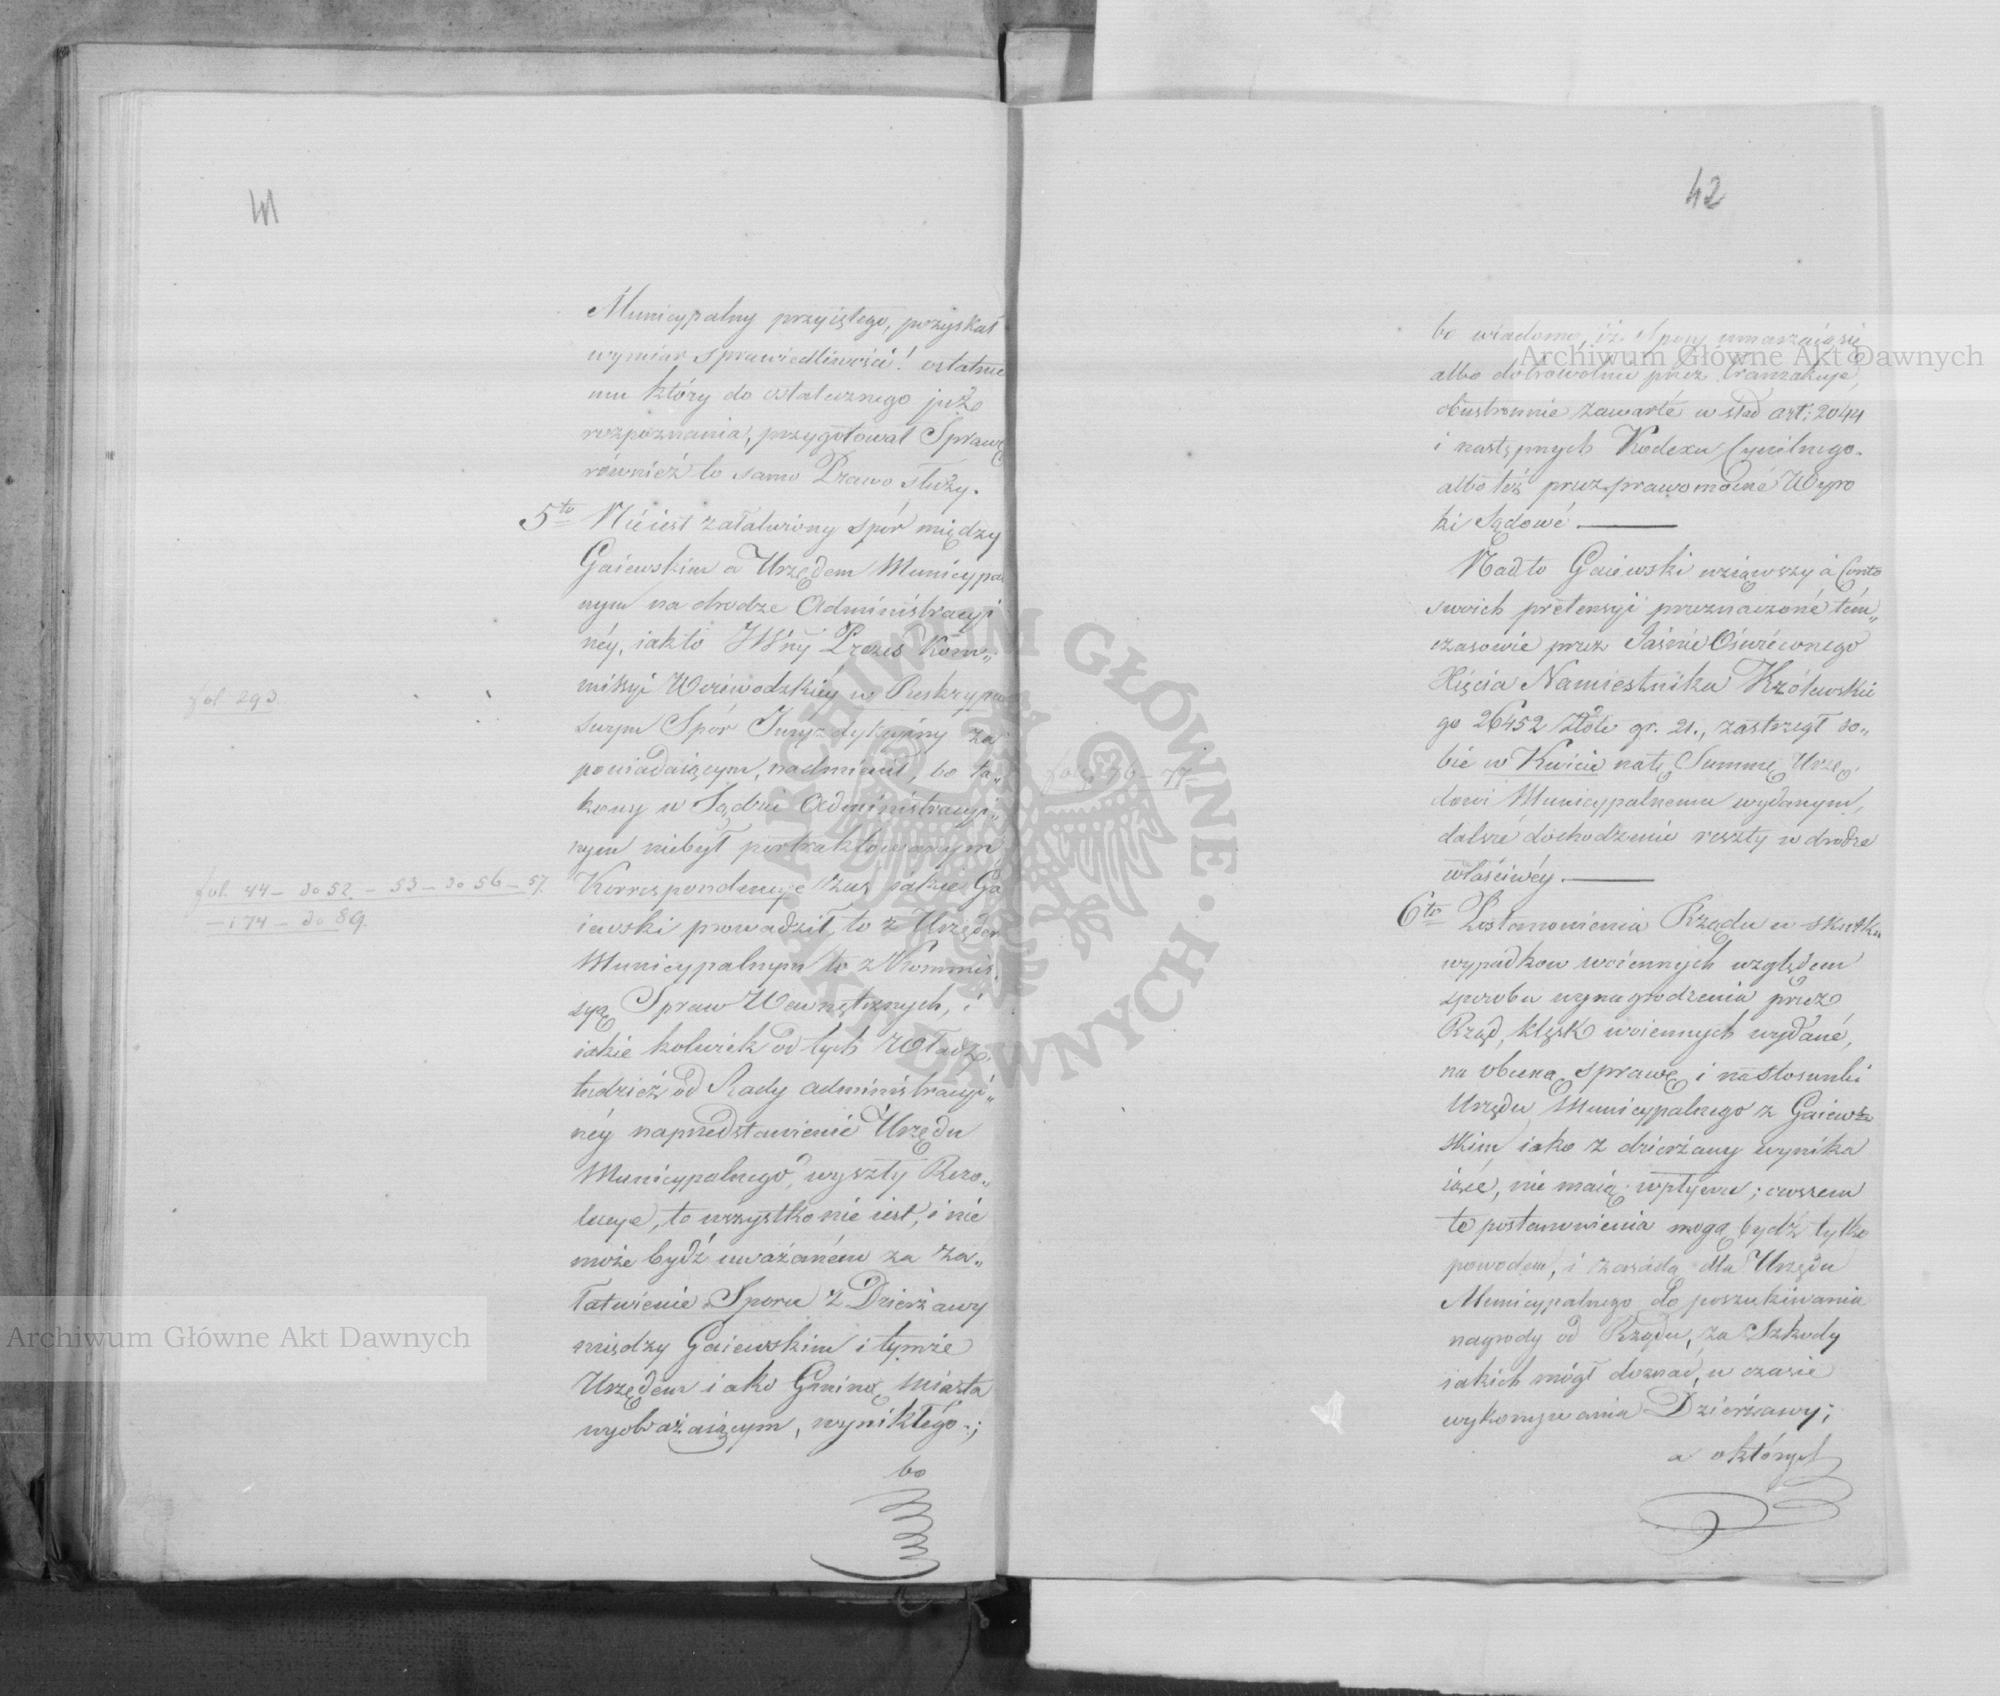 41
Municypalny przyiętego, pozyskał
wymiar sprawiedliwości! ostatnie
mu który do ostatecznego już
rozpoznania, przygotował Sprawę
również to samo Prawo służy.
5to Nieiest załatwiony spór między
Gaiewskim a Urzędem Municypal
nym na drodze Administracyi
néy, iakto JWny Prezes Kom„
missyi Woiewodzkiéy w Reskrypcie
fol 293.
swym Spór Juryzdykcyiny za
powiadaiącym, nadmienił, bo ta„
kowy w Sądzie Administracyi„
nym niebył pertraktowanym
Korrespondencye zaś iakie Ga
fol. 44 – do 52 – 53 – do 56 – 57.
– i 74 – do 89.
iewski prowadził, to z Urzędem
Municypalnym to z Kommis„
syą Spraw Wewnętrznych, i
iakie kolwiek od tych Władz,
tudzież od Rady administracyi„
néy naprzedstawienie Urzędu
Municypalnego, wyszły Rezo„
lucye, to wszystko nie iest, i nie
może bydź uważaném za za„
łatwienie Sporu z Dzierżawy
między Gaiewskim i tymże
Urzędem iako Gminę Miasta
wyobrażaiącym, wynikłego;
bo
42
bo wiadomo, iż Spory umarzaią się
albo dobrowolne przez tranzakcye,
obustronnie zawarte w ślad art: 2044
i następnych Kodexu Cywilnego.
albo też przez prawomocné Wyro
ki Sądowé.
Nadto Gaiewski wziąwszy á Conto
swoich pretensyi przeznaczoné tém„
czasowie przez Jaśnie Oświeconego
Xięcia Namiestnika Królewskie
go 26452 złote gr. 21., zastrzegł so„
bie w Kwicie natę Summę Urzę„
fol. 76 – 77.
dowi Municypalnemu wydanym,
dalsze dochodzenie reszty w drodze
właściwéy.
6to Postanowienia Rządu w skutku
wypadkow woiennych względem
sposobu wynagrodzenia przez
Rząd, klęsk woiennych wydané,
na obecną sprawę i na stosunki
Urzędu Municypalnego z Gaiew„
skim iako z dzierżawy wynika
iące, nie maią wpływu; owszem
te postanowienia mogą bydź tylko
powodem, i zasadą dla Urzędu
Municypalnego do poszukiwania
nagrody od Rządu, za Szkody
iakich mógł doznać, w czasie
wykonywania Dzierżawy;
a októrych
Archiwum Główne Akt Dawnych
Archiwum Główne Akt Dawnych
ARCHIWUM GŁÓWNE · AKT DAWNYCH ·